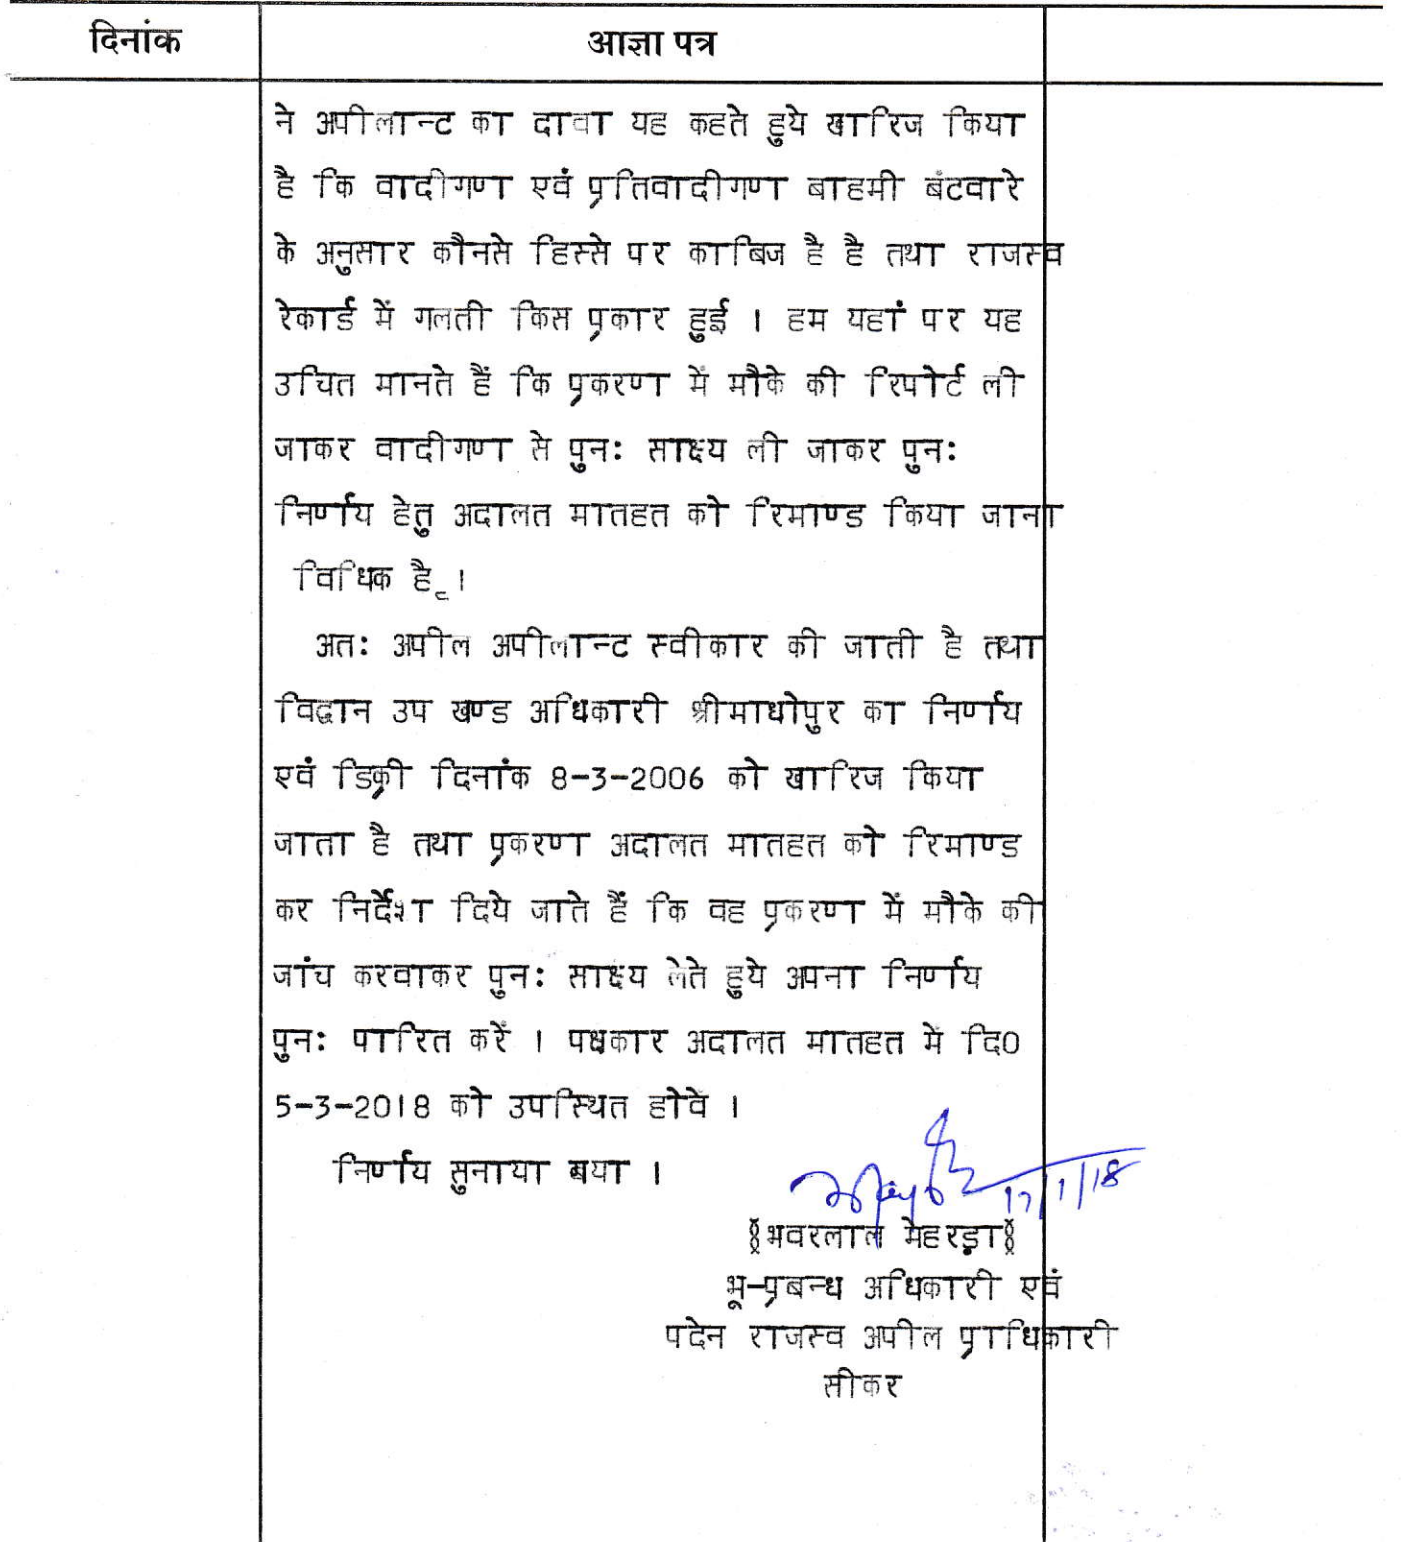 दिनांक
आज्ञा पत्र
ने अपीलान्ट का दावा यह कहते हुये खारिज किया
है कि वादीगण एवं प्रतिवादीगण बाहमी बंटवारे
के अनुसार कौनसे हिस्से पर काबिज है है तथा राजस्व
रेकार्ड में गलती किस प्रकार हुई । हम यहां पर यह
उचित मानते हैं कि प्रकरण में मौके की रिपोर्ट ली
जाकर वादीगण से पुनः साक्ष्य ली जाकर पुनः
निर्णय हेतु अदालत मातहत को रिमाण्ड किया जाना
विधिक है ।
अतः अपील अपीलान्ट स्वीकार की जाती है तथा
विद्वान उप खण्ड अधिकारी श्रीमाधोपुर का निर्णय
एवं डिक्री दिनांक 8-3-2006 को खारिज किया
जाता है तथा प्रकरण अदालत मातहत को रिमाण्ड
कर निर्देश दिये जाते हैं कि वह प्रकरण में मौके की
जांच करवाकर पुनः साक्ष्य लेते हुये अपना निर्णय
पुनः पारित करें । पक्षकार अदालत मातहत में दि0
5-3-2018 को उपस्थित होवे ।
निर्णय सुनाया गया ।
17/1/18
(भवरलाल मेहरड़ा)
भू-प्रबन्ध अधिकारी एवं
पदेन राजस्व अपील प्राधिकारी
सीकर